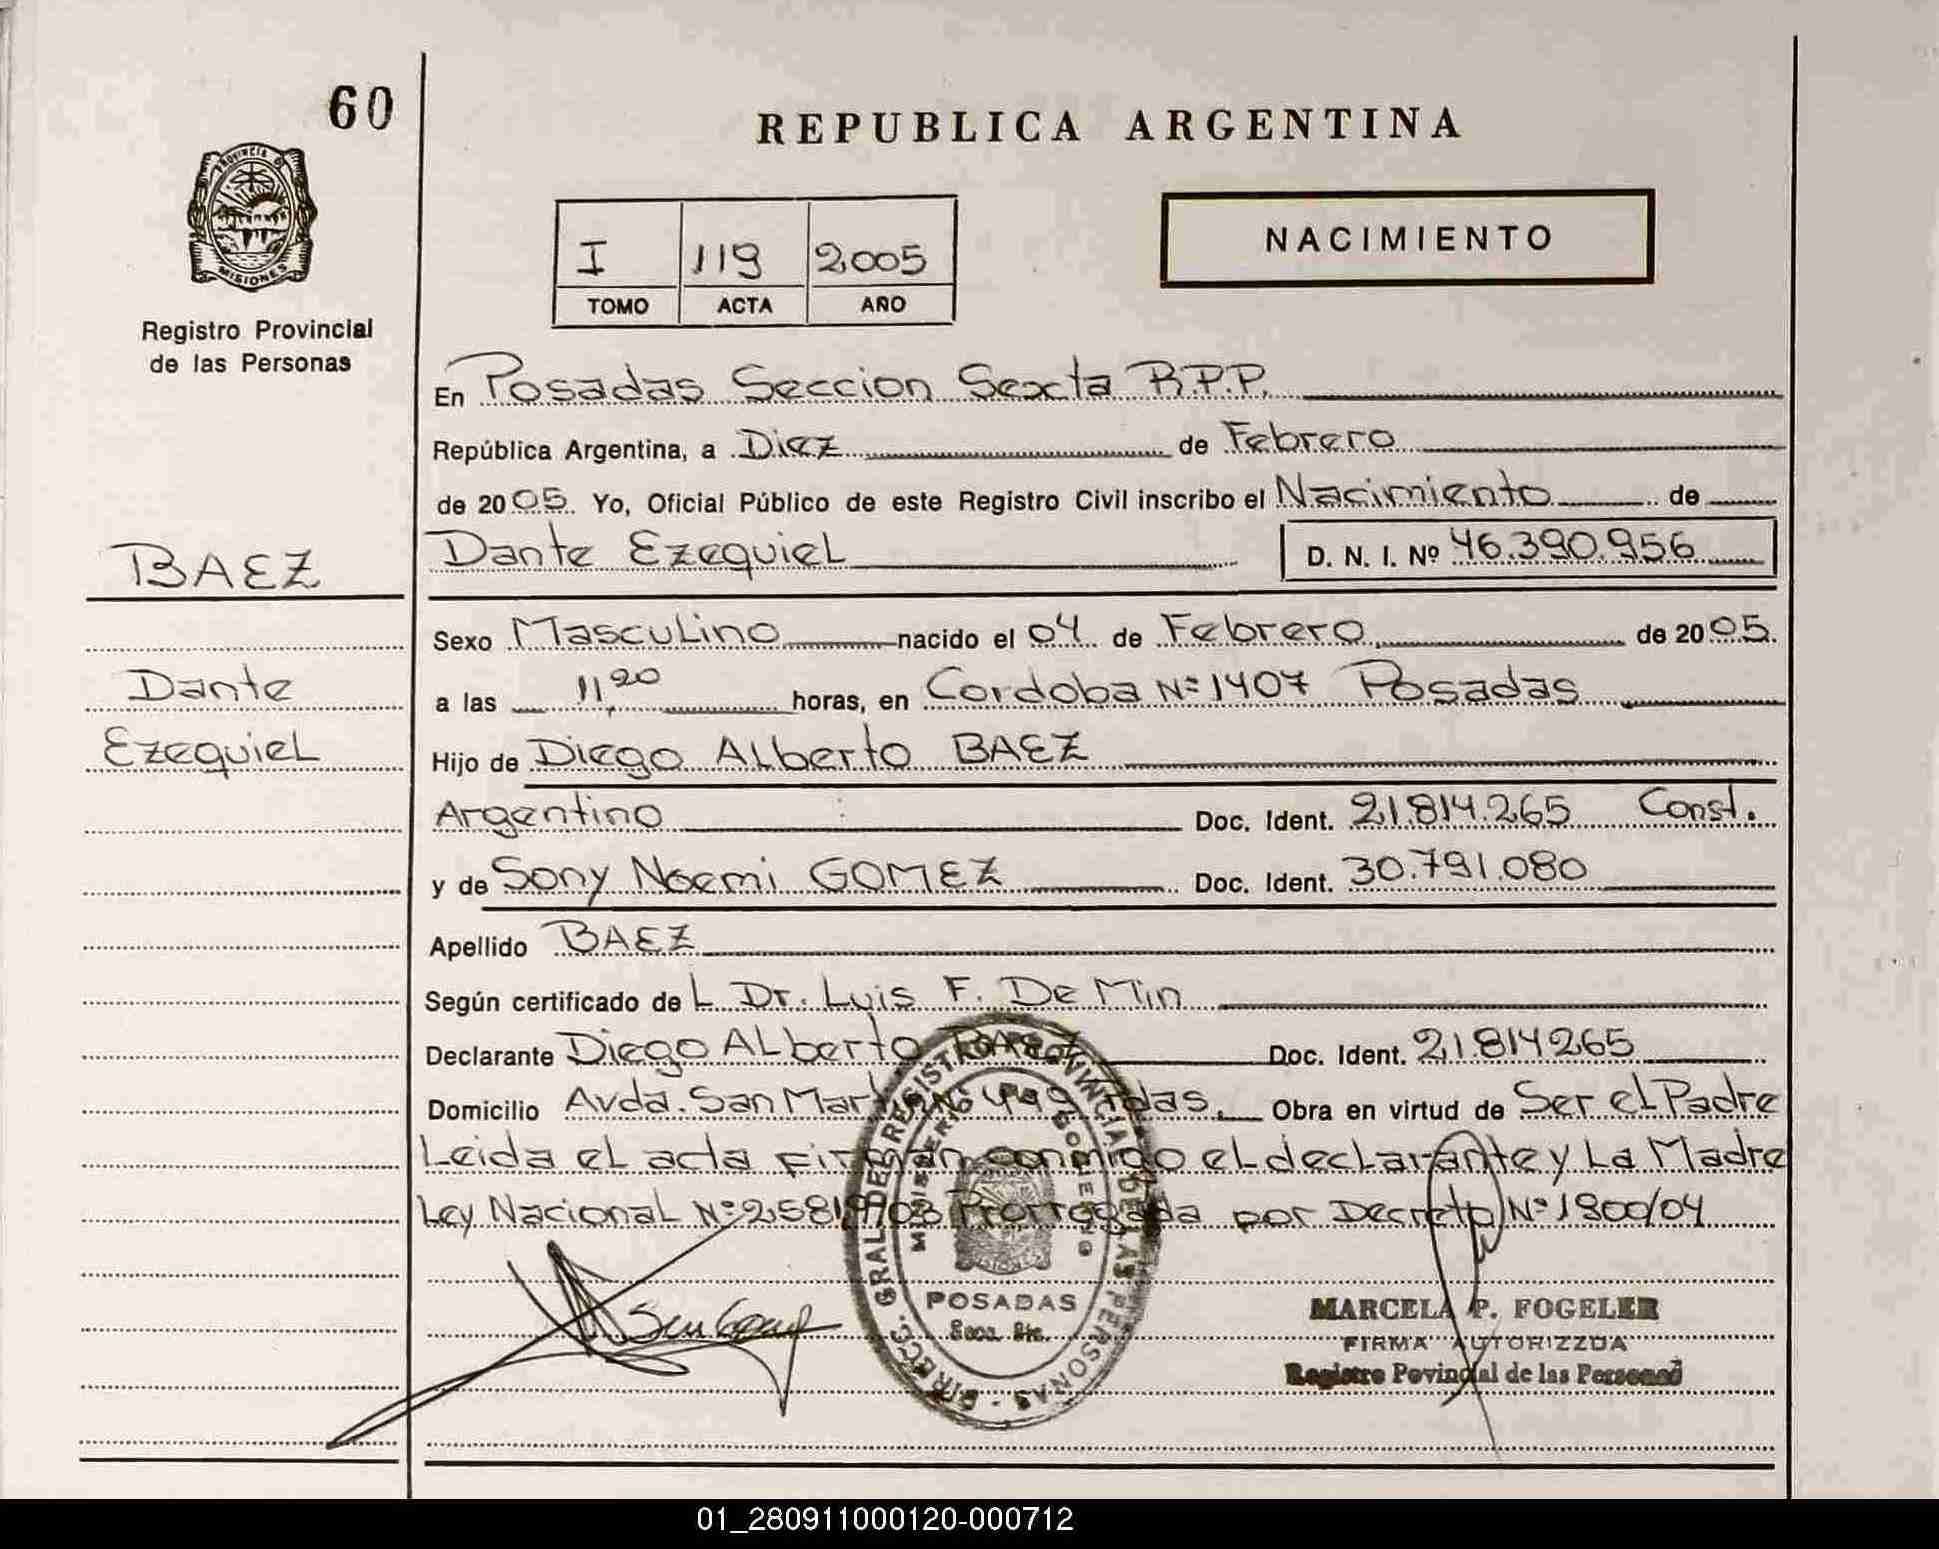 60
REPUBLICA ARGENTINA
PROVINCIA D
MISIONES
Registro Provincial
de las Personas
I 119 2005
TOMO ACTA AÑO
NACIMIENTO
En Posadas Seccion Sexta R.P.P.
República Argentina, a Diez de Febrero
de 2005. Yo, Oficial Público de este Registro Civil inscribo el Nacimiento de
BAEZ
Dante Ezequiel D. N. I. Nº 46.390.956
Sexo Masculino nacido el 04 de Febrero de 2005.
Dante
Ezequiel
a las 11,20 horas, en Cordoba Nº 1407 Posadas
Hijo de Diego Alberto BAEZ
Argentino Doc. Ident. 21.814.265 Const.
y de Sony Noemi GOMEZ Doc. Ident. 30.791.080
Apellido BAEZ
Según certificado de L Dr. Luis F. De Min
Declarante Diego Alberto BAEZ Doc. Ident. 21.814265
Domicilio Avda. San Mar Pdas. Obra en virtud de Ser el Padre
Leida el acta firman conmigo el declarante y La Madre
Ley Nacional Nº 25819/03 Prorrogada por Decreto Nº 1800/04
DIRECC. GRAL DE REGISTRO PROVINCIAL DE LAS PERSONAS
POSADAS
MARCELA P. FOGELER
FIRMA AUTORIZZDA
Registro Povincial de las Personad
01_280911000120-000712